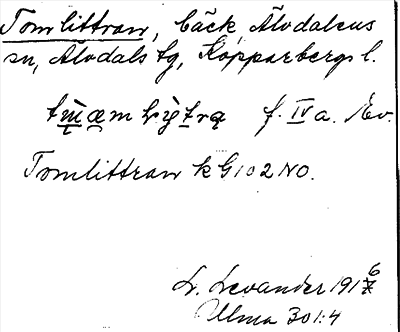 Tomlittran, bäck Älvdalens
sn, Älvdals tg, Kopparbergs l.
f. IV a. Ev.
Tomlittran k G102 NO.
L. Levander 1916
Ulma 301:4